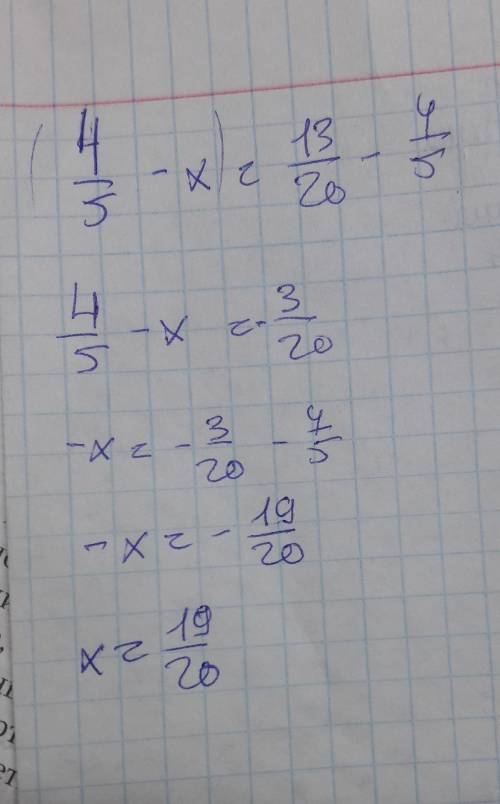 (4/5 - x) = 13/20 - 4/5
4/5 - x = -3/20
-x = -3/20 - 4/5
-x = -19/20
x = 19/20